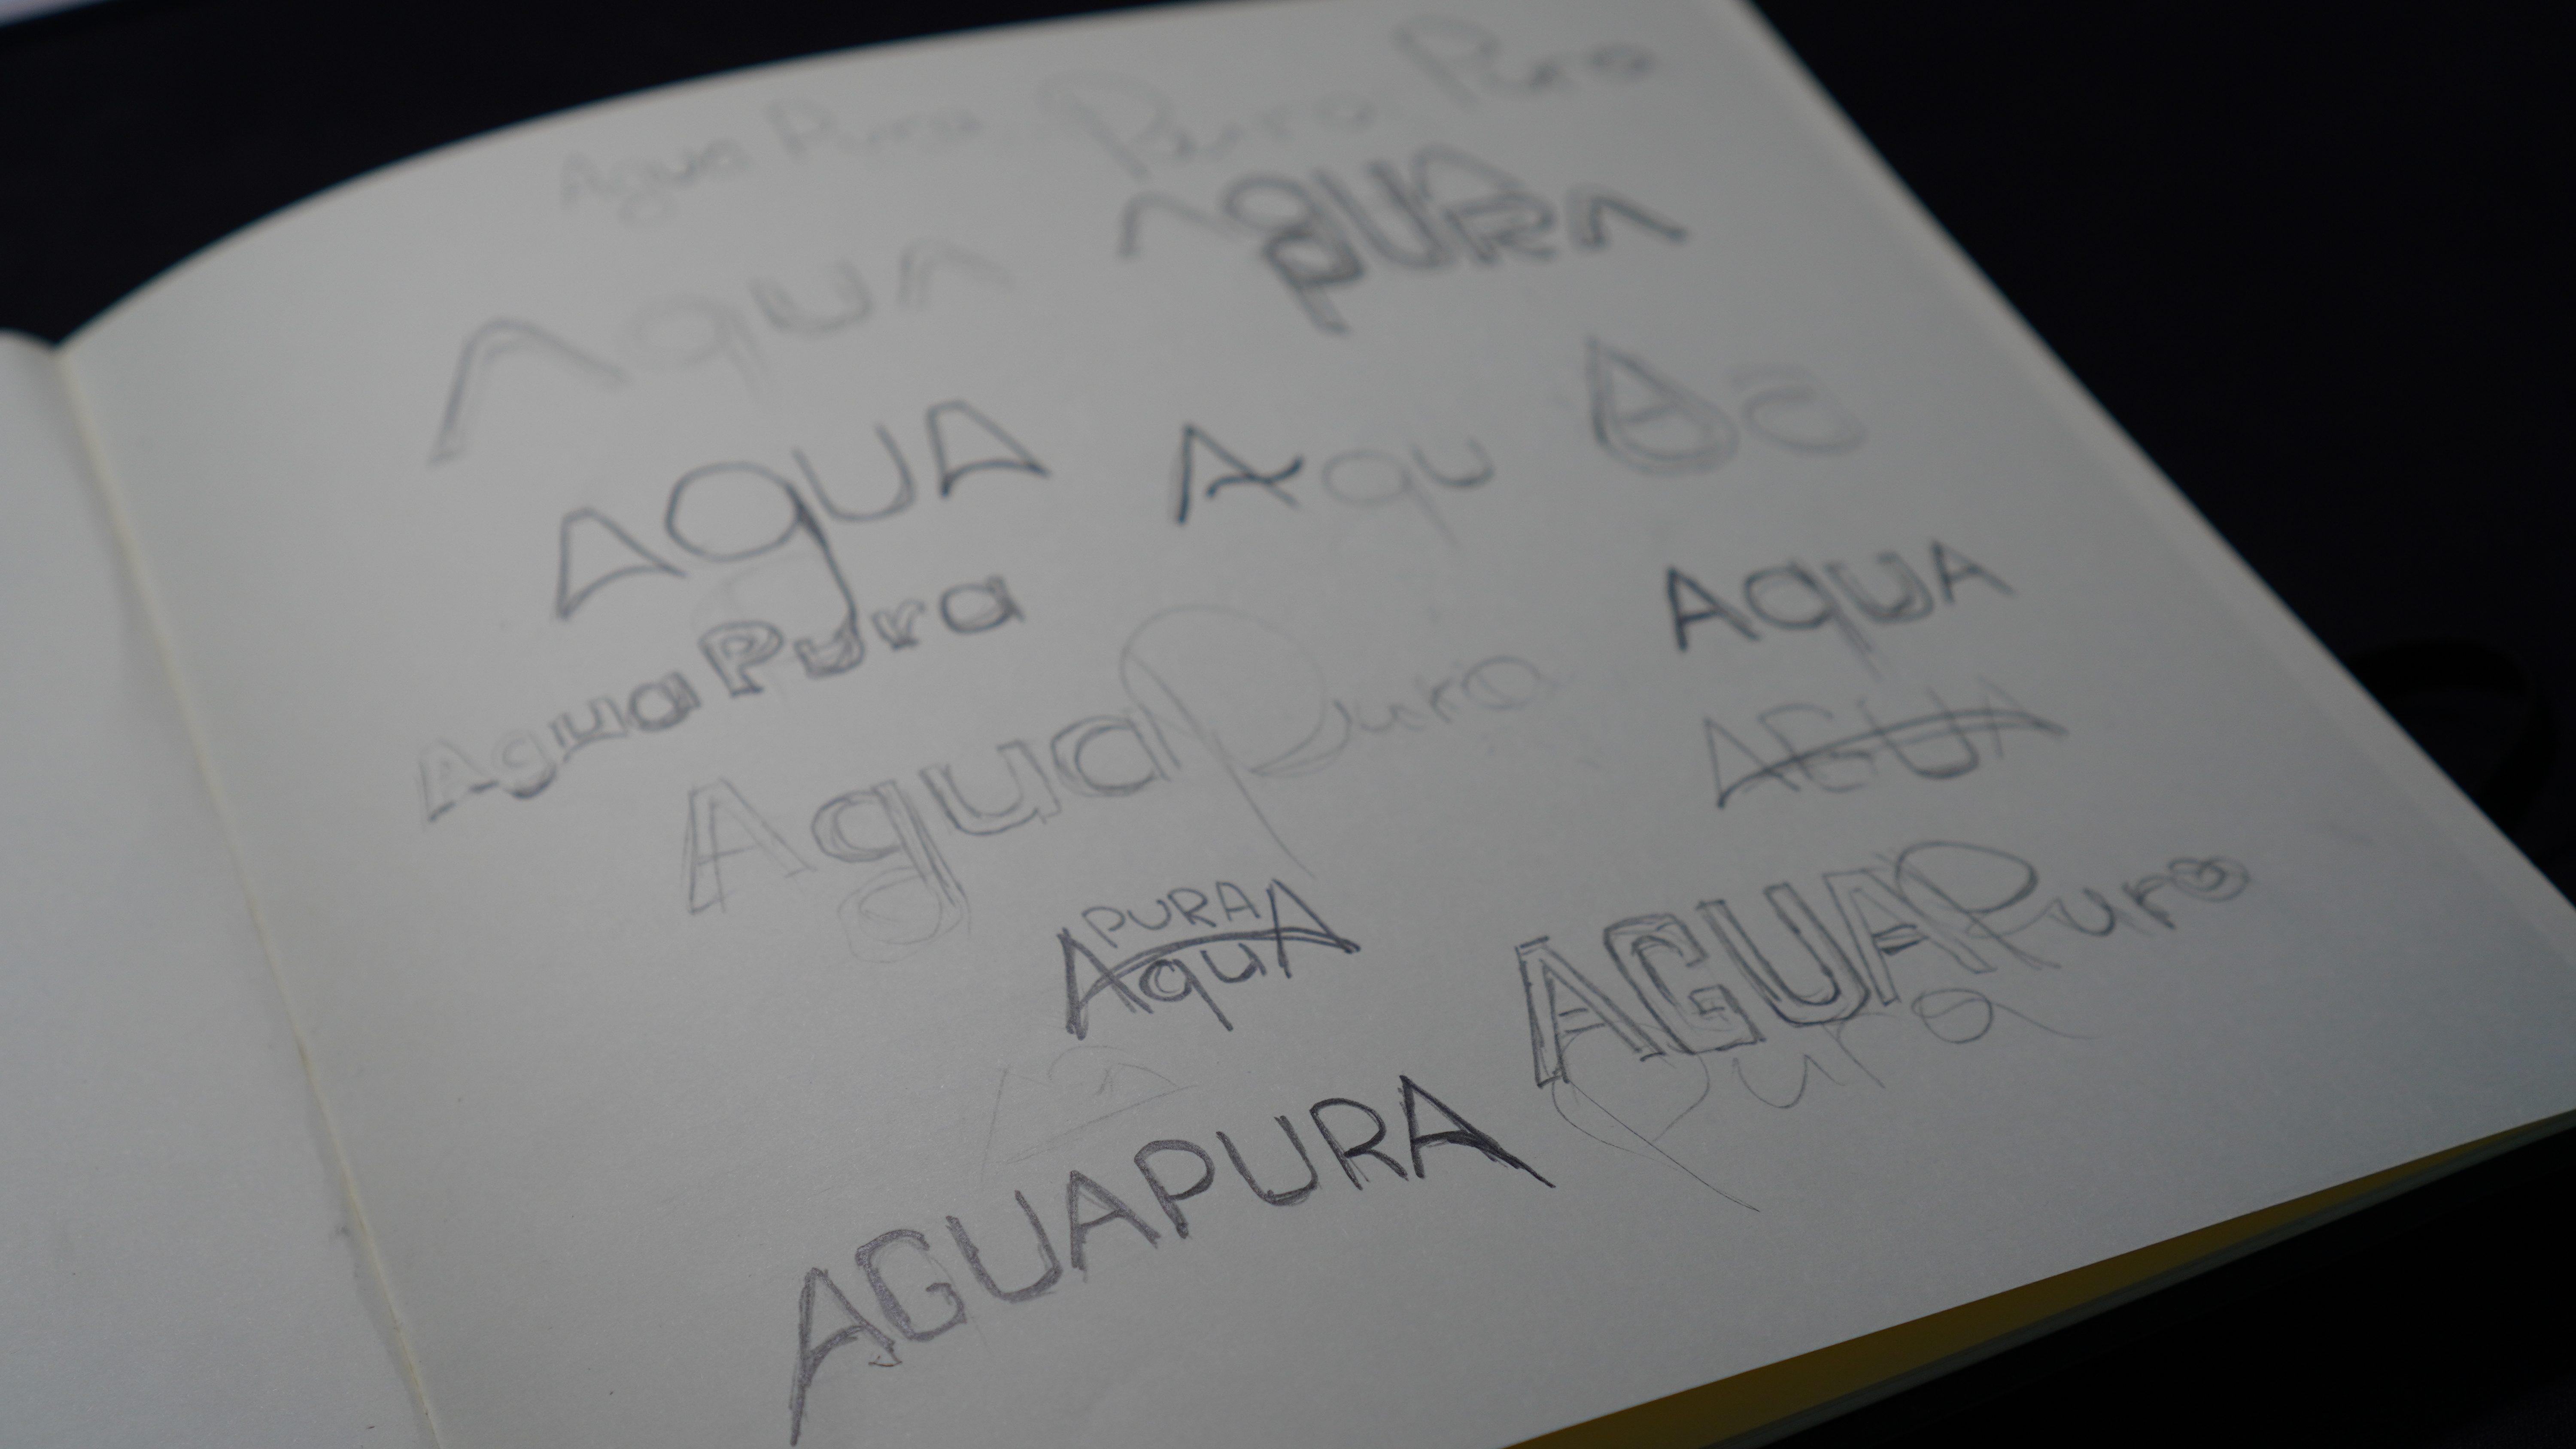 Agua Pura Pura Pura
AquA
AqUA
PURA
AqUA
Aqu
AquA
Agua Pura
Agua Pura
AGUA
PURA
AquA
AGUA Pura
Pura
AGUAPURA